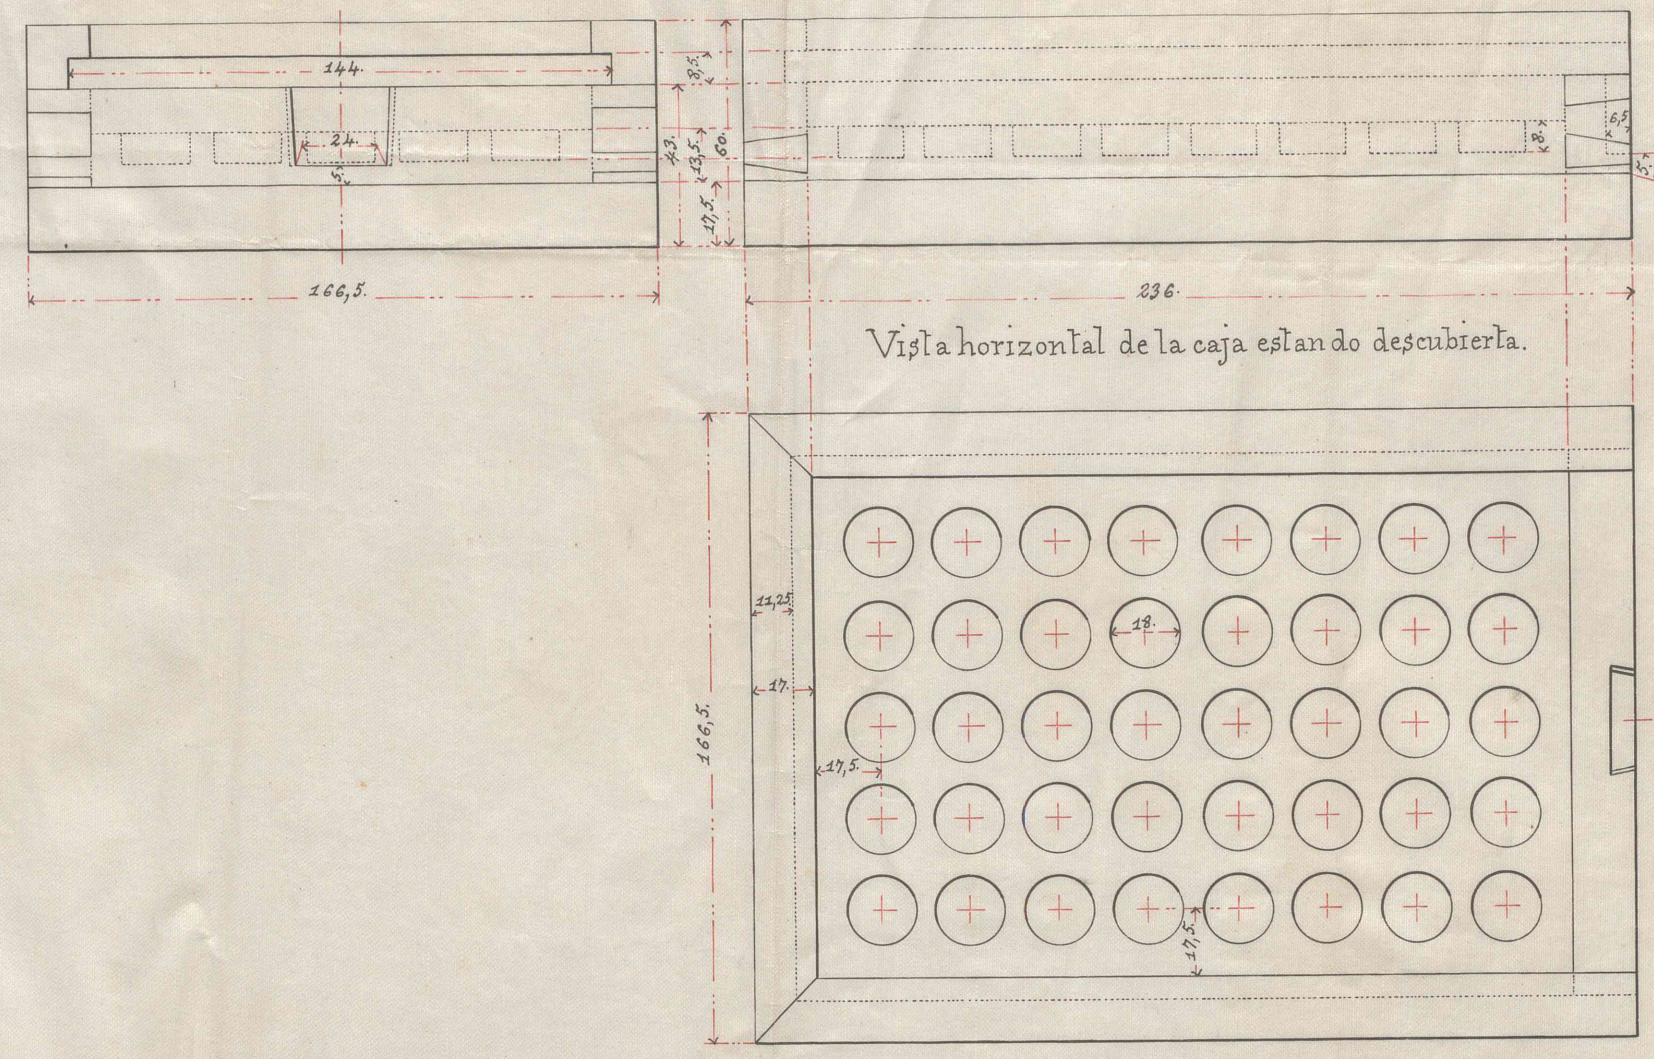 144.
24.
5.
166,5.
8,5.
43.
13,5.
60.
17,5.
8.
6,5
5.
236.
Vista horizontal de la caja estando descubierta.
11,25
18.
17.
166,5.
17,5.
17,5.